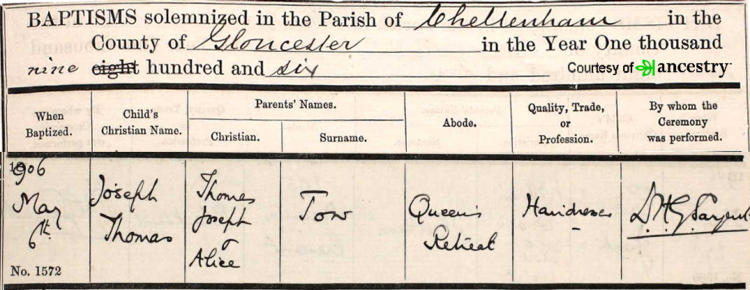 BAPTISMS solemnized in the Parish of Cheltenham in the
County of Gloucester in the Year One thousand
nine eight hundred and six
Courtesy of ancestry
When Baptized.
Child's Christian Name.
Parents' Names.
Christian.
Surname.
Abode.
Quality, Trade, or Profession.
By whom the Ceremony was performed.
1906
May
6th
No. 1572
Joseph
Thomas
Thomas
Joseph
&
Alice
Tow
Queens
Retreat
Hairdresser